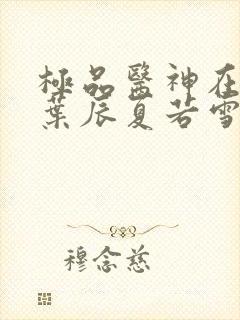 極品醫神在
葉辰夏若雪
穆念慈